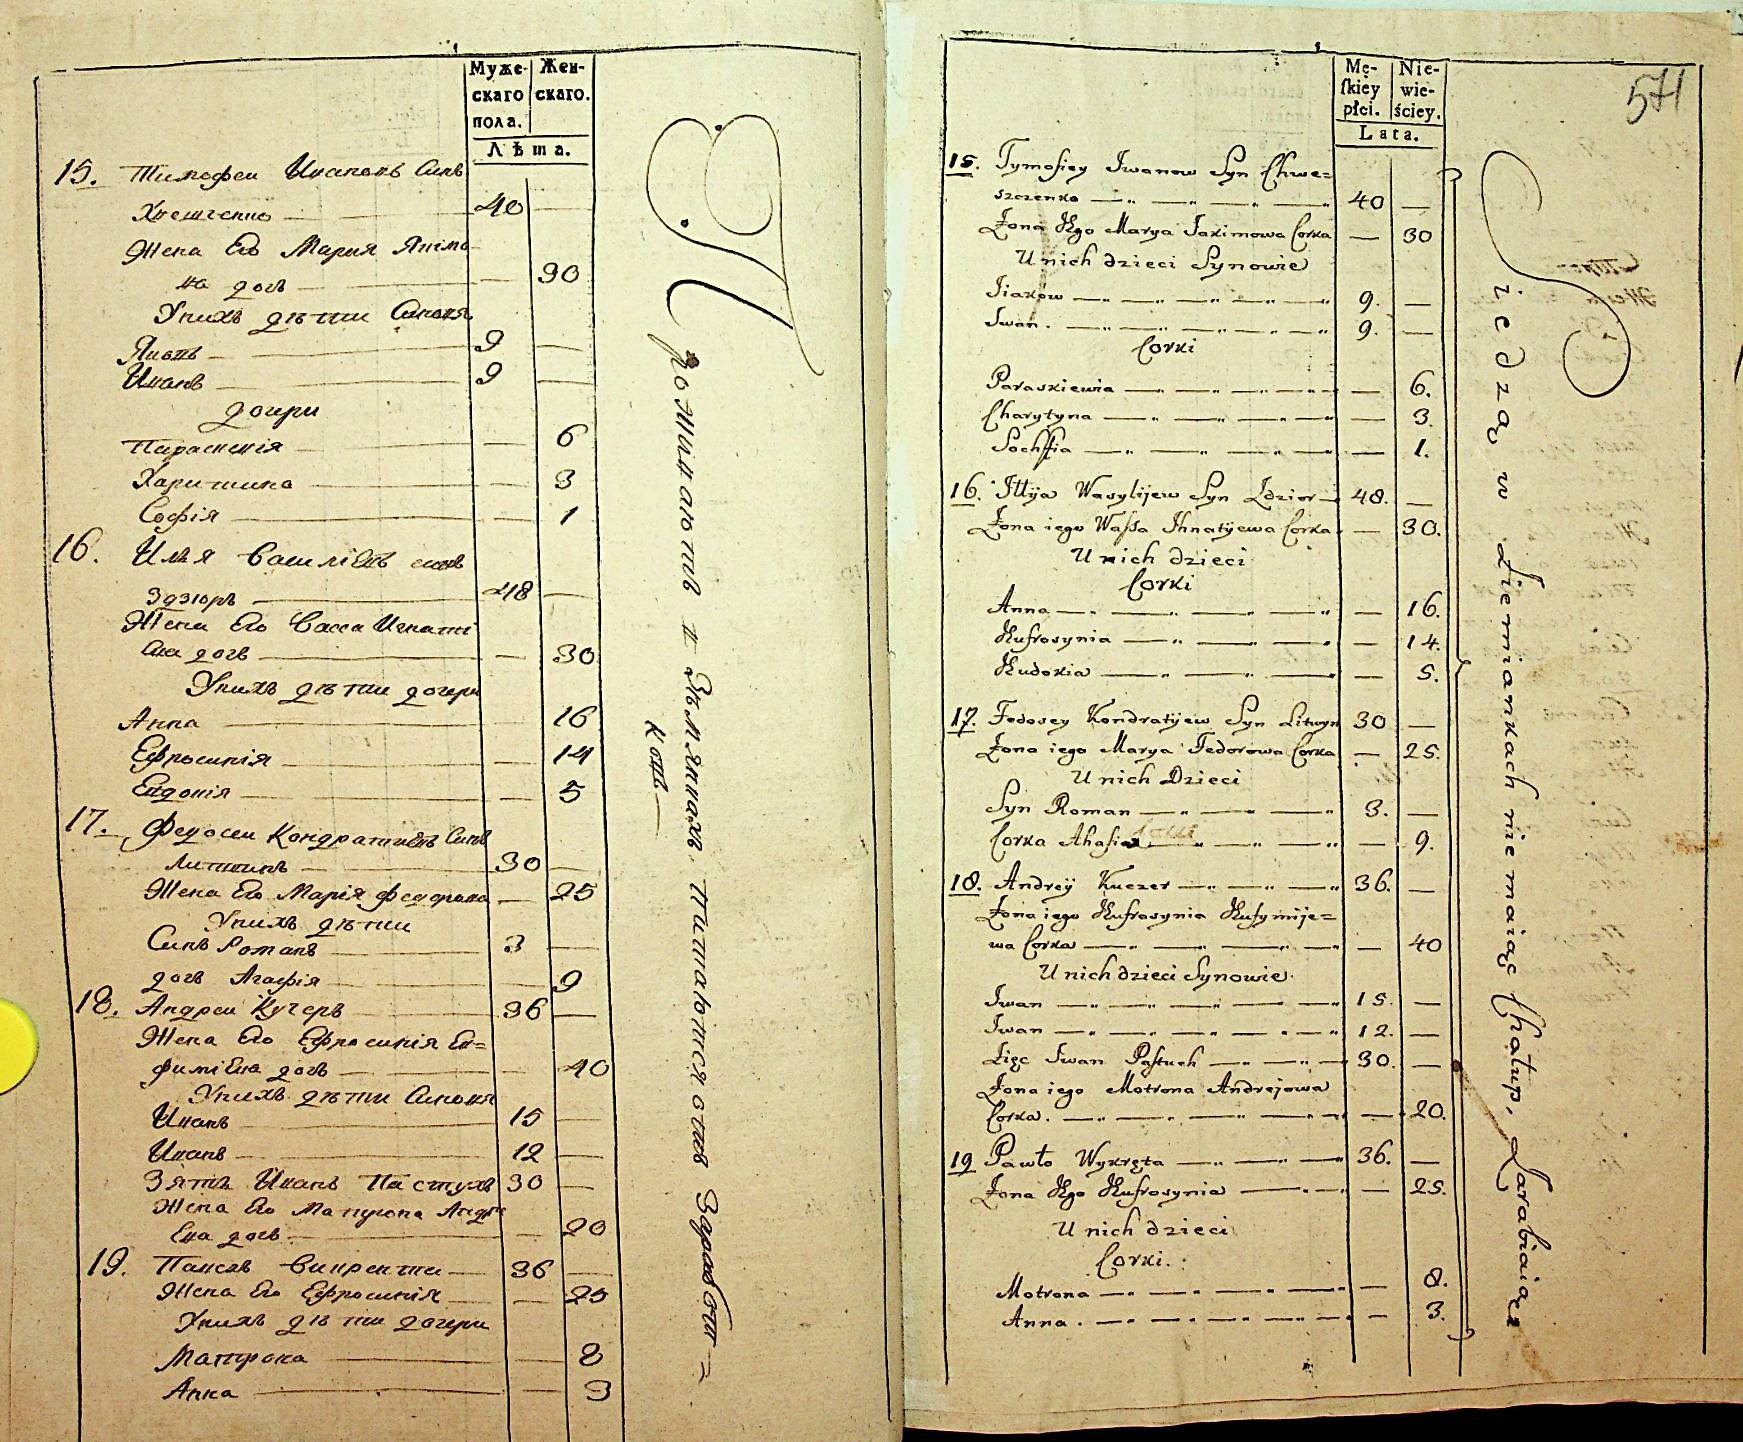 Муже-
скаго
пола.
Жен-
скаго.
Лѣта.
15. Тимофеи Ивановъ Синъ
Хвешченко 40
Жена Его Мария Якимо-
ва дочь 30
Унихъ дѣтии Синовя
Яковъ 9
Иванъ 9
дочери
Параскевія 6
Харитина 3
Софія 1
16. Илія Василіевъ синъ
Здзюръ 48
Жена Его Васса Игнаті
Ева дочь 30
Унихъ дѣтии дочери
Анна 16
Ефросинія 14
Евдокія 5
17. Федосеи Кондратиевъ Синъ
Литвинъ 30
Жена Его Марія Федорова 25
Унихъ дѣтии
Синъ Романъ 3
дочь Агафія 9
18. Андреи Кучеръ 36
Жена Его Ефросинія Ев=
фиміЕва дочь 40
Унихъ дѣтии Синовя
Иванъ 15
Иванъ 12
Зять Иванъ Пастухъ 30
Жена Его Матрона Андре
Ева дочь 20
19. Павелъ Викрента 36
Жена Его Ефросинія 25
Унихъ дѣтии дочери
Матрона 8
Анна 3
Проживаютъ в Зѣмлянкахъ питаются отъ Заработ=
ковъ
571
Mę-
ſkiey
płci.
Nie-
wie-
ściey.
Lata.
15. Tymofiey Iwanow Syn Chwe=
szczenko 40
Żona Jego Marya Jakimowa Corka 30
U nich dzieci Synowie
Jiakow 9.
Iwan. 9.
Corki
Paraskiewia 6.
Charytyna 3.
Sochfia 1.
16. Illija Wasylijew Syn Zdzior 48.
Żona iego Waſsa Ihnatijewa Corka 30.
U nich dzieci
Corki
Anna 16.
Eufrosynia 14.
Eudokia 5.
17. Fedosey Kondratijew Syn Litwyn 30
Żona iego Marya Fedorowa Corka 25.
U nich Dzieci
Syn Roman 3.
Corka Ahafia 9.
18. Andrey Kuczer 36.
Żona iego Eufrosynia Eufymije=
wa Corka 40
U nich dzieci Synowie.
Iwan 15.
Iwan 12.
Zięć Iwan Paſtuch 30.
Żona iego Motrona Andrejowa
Corka. 20.
19 Pawło Wykręta 36.
Żona Jego Eufrosynia 25.
U nich dzieci
Corki.
Motrona 8.
Anna. 3.
Siedzą w Ziemiankach nie maiąc Chałup, Zarabiaią